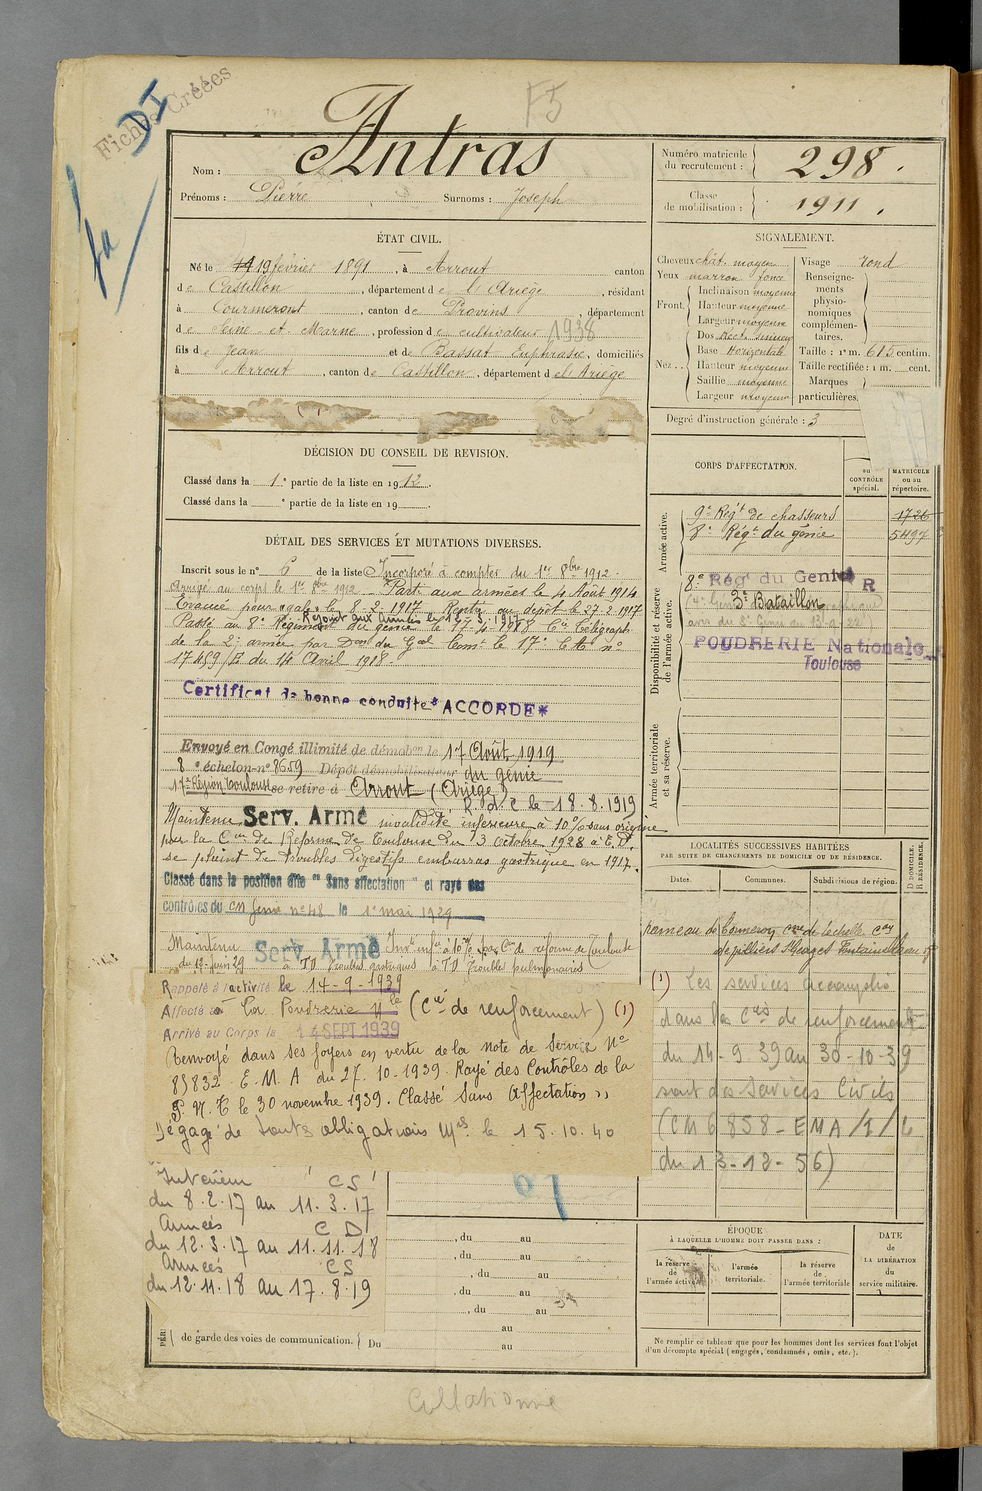 Fiches Créées
DI
F5
Nom : Antras
Prénoms : Pierre Surnoms : Joseph
Numéro matricule du recrutement : 298.
Classe de mobilisation : 1911.
ÉTAT CIVIL.
Né le 19 février 1891, à Arrout canton
de Castillon, département de l'Ariège, résidant
à Courmeront, canton de Provins, département
de Seine et Marne, profession de cultivateur 1938
fils de Jean et de Bassat Euphrasie, domiciliés
à Arrout, canton de Castillon, département de l'Ariège
SIGNALEMENT.
Cheveux chât. moyen
Yeux marron foncé
Front. Inclinaison moyenne
Hauteur moyenne
Largeur moyenne
Nez.. Dos Rect. sinueux
Base Horizontale
Hauteur moyenne
Saillie moyenne
Largeur moyenne
Visage rond
Renseignements physionomiques complémentaires.
Taille : 1 m. 61.5 centim.
Taille rectifiée : 1 m. cent.
Marques particulières,
Degré d'instruction générale : 3
DÉCISION DU CONSEIL DE REVISION.
Classé dans la 1e partie de la liste en 1912.
Classé dans la e partie de la liste en 19 .
CORPS D'AFFECTATION.
au CONTRÔLE spécial.
MATRICULE ou au répertoire.
Armée active.
9e Régt de chasseurs 1726
8e Régt du génie 5497
Disponibilité et réserve de l'armée active.
8e Rég du Génie R
3e Bataillon
POUDRERIE Nationale
Toulouse
Armée territoriale et sa réserve.
DÉTAIL DES SERVICES ET MUTATIONS DIVERSES.
Inscrit sous le n° 6 de la liste Incorporé à compter du 1er 8bre 1912.
Arrivé au corps le 1er 8bre 1912. Parti aux armées le 4 Août 1914
Evacué pour gale le 8-2-1917 Rentré au dépôt le 27.2.1917
Rejoint aux armées le 12.3.1917
Passé au 8e Régiment du génie le 17-4-1918 Cie Télégraph
de la 2e armée par Don du Gal Comt le 17e CA n°
17459/4 du 14 Avril 1918.
Certificat de bonne conduite "ACCORDE"
Envoyé en Congé illimité de démobon le 17 Août 1919
8e échelon-n° 8659 Dépôt démobilisateur du génie
17e Région Toulouse se retire à Arrout (Ariège)
R. d. C le 18.8.1919
Maintenu Serv. Armé invalidité inférieure à 10% sans origine
par la Con de Réforme de Toulouse du 3 octobre 1928 à E.D.
se plaint de troubles digestifs embarras gastrique en 1917.
Classé dans la position dite "Sans affectation" et rayé des
contrôles du CM Génie n° 48 le 1er mai 1929
Maintenu Serv. Armé Invté infre à 10% par Con de réforme de Toulouse
du 12-Juin 29 à TD Troubles gastriques à TD Troubles pulmonaires
Rappelé à l'activité le 14-9-1939
Affecté à La Poudrerie Nle (Cie de renforcement) (1)
Arrivé au Corps le 14 SEPT 1939
Renvoyé dans ses foyers en vertu de la Note de Service N°
85832 E.M.A du 27.10-1939. Rayé des Contrôles de la
P.N.T le 30 novembre 1939. Classé "Sans Affectation"
Dégagé de toutes obligations Mres le 15.10.40
LOCALITÉS SUCCESSIVES HABITÉES
PAR SUITE DE CHANGEMENTS DE DOMICILE OU DE RÉSIDENCE.
Dates. Communes. Subdivisions de région.
D DOMICILE. R RÉSIDENCE.
hameau de Commeron Cne de Léchelle Con
de Villiers St Georges Fontainebleau
(1) Les services accomplis
dans les Cies de renforcement
du 14-9-39 au 30-10-39
sont des Services Civils
(CM 6858-EMA/1/L
du 13-12-56)
Intérieur CS
du 8.2.17 au 11.3.17
Armées CD
du 12.3.17 au 11.11.18
Armées CS
du 12.11.18 au 17.8.19
, du au
, du au
, du au
, du au
, du au
au
de garde des voies de communication. Du au
ÉPOQUE
À LAQUELLE L'HOMME DOIT PASSER DANS :
la réserve de l'armée active.
l'armée territoriale.
la réserve de l'armée territoriale
DATE de LA LIBÉRATION du service militaire.
Ne remplir ce tableau que pour les hommes dont les services font l'objet
d'un décompte spécial (engagés, condamnés, omis, etc.).
Collationné